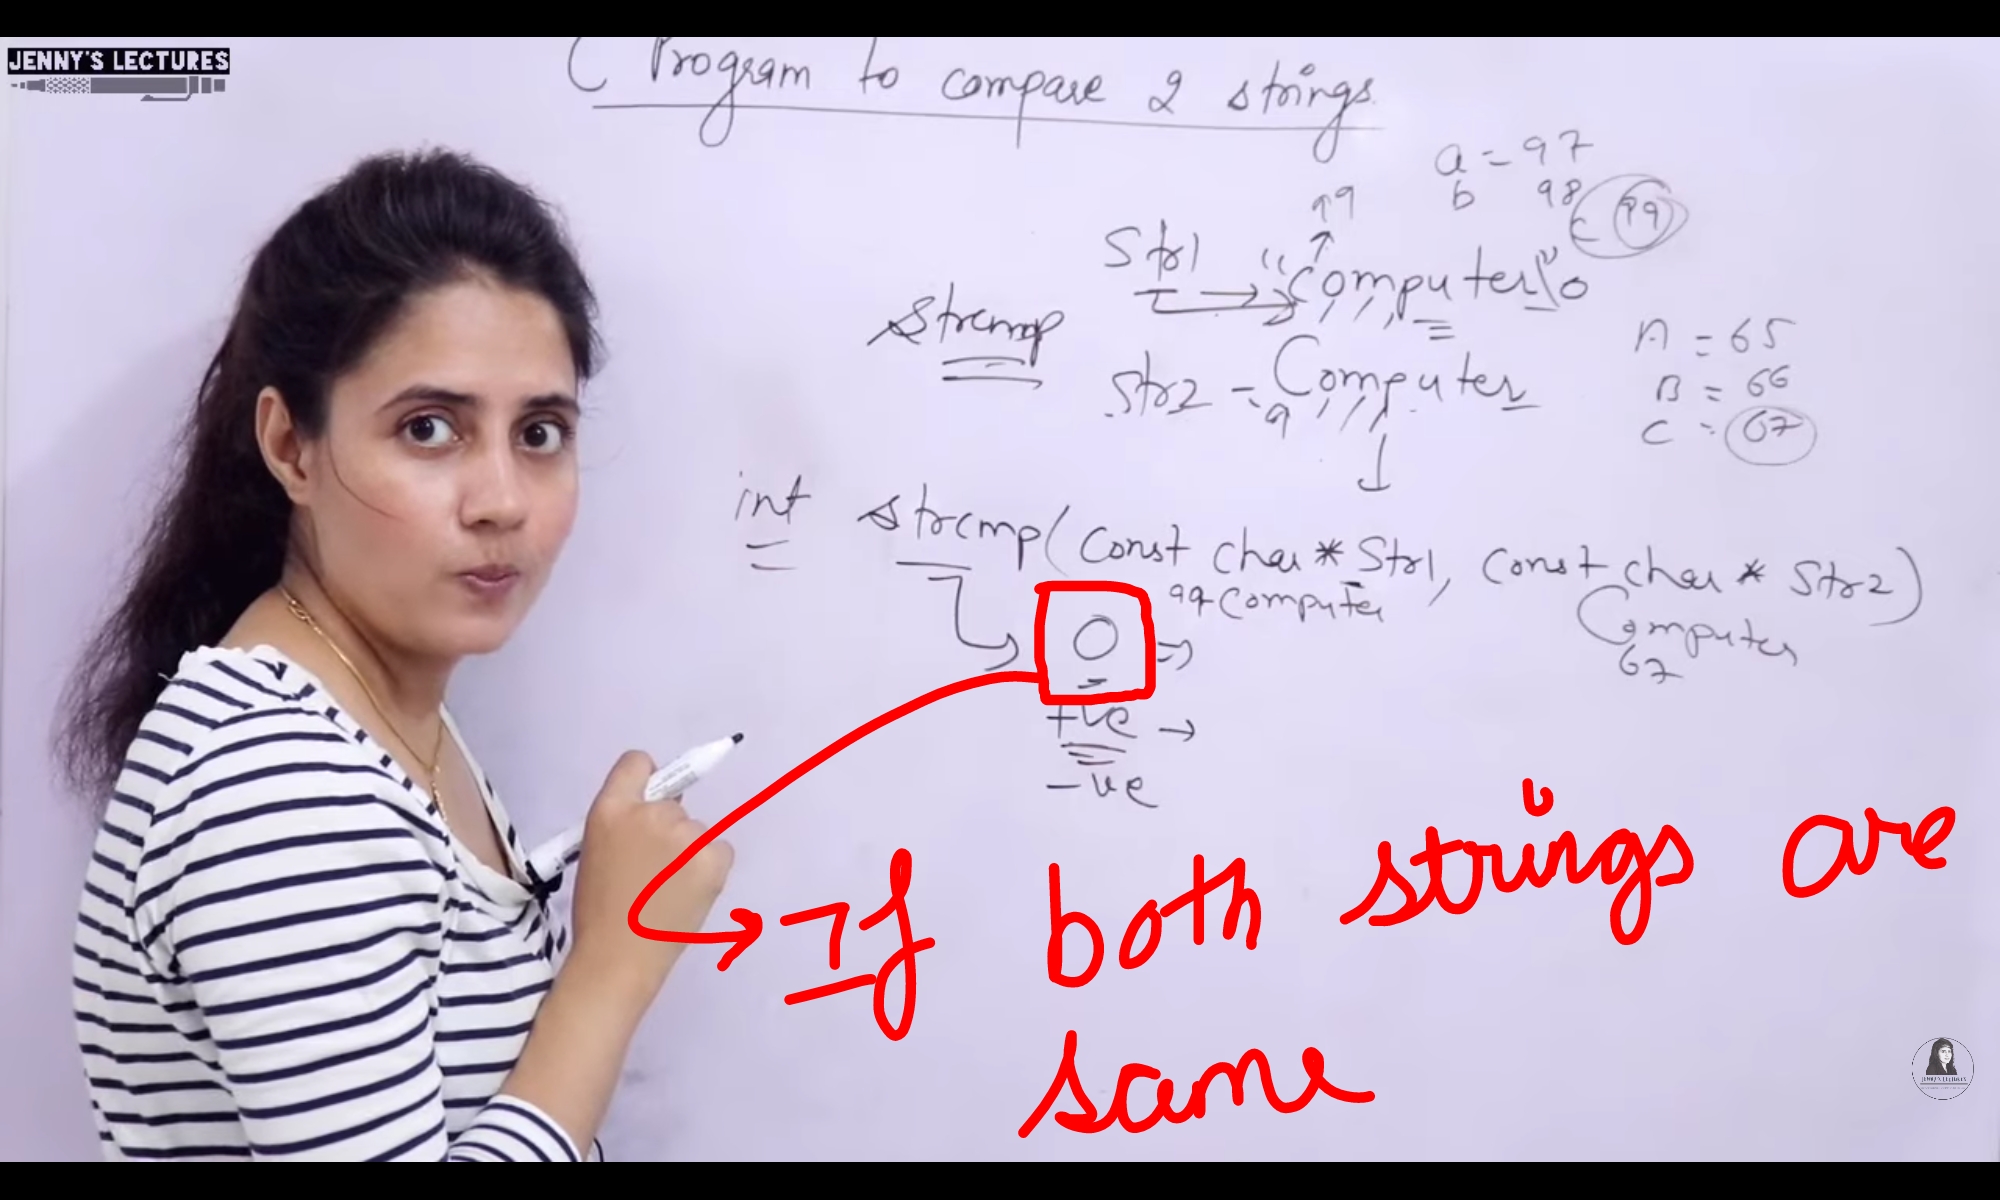 JENNY'S LECTURES
C Program to compare 2 strings
a = 97
b 98
c 99
99
Str1 "Computer"\0
strcmp
Str2 - Computer
A = 65
B = 66
C = 67
int strcmp(const char * Str1, const char * Str2)
99 Computer
Computer
67
0
+ve
-ve
If both strings are
same
JENNY'S LECTURES